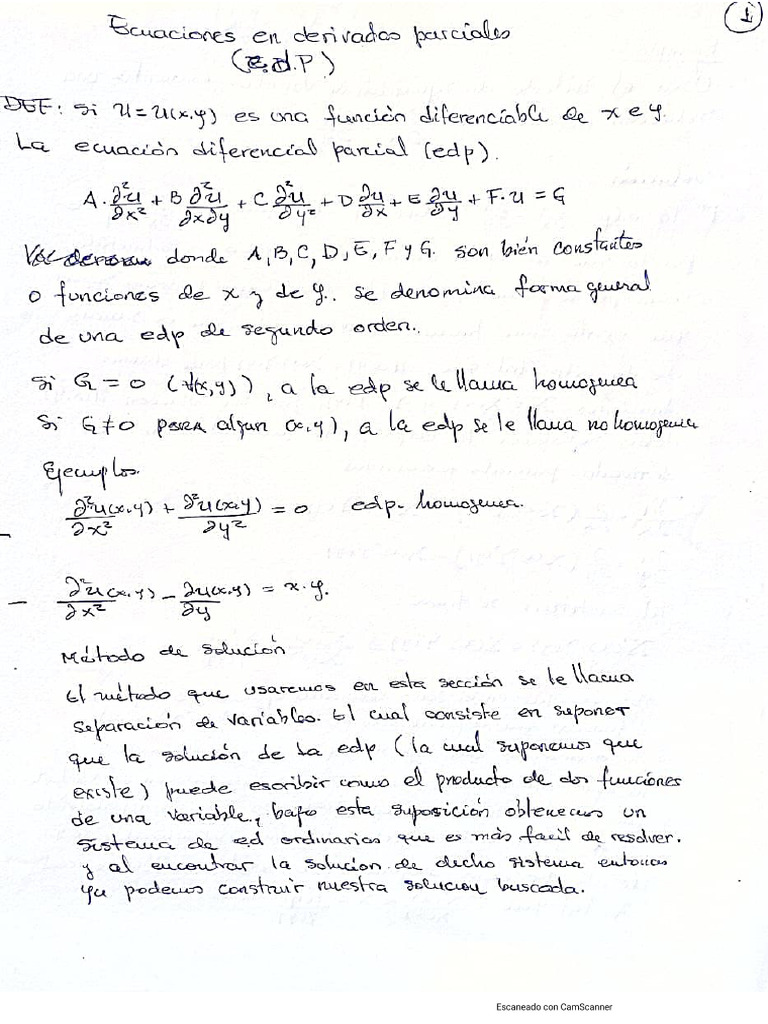 1
Ecuaciones en derivadas parciales
(E.d.P)
DEF: Si u=u(x,y) es una función diferenciable de x e y.
La ecuación diferencial parcial (edp).
A·∂²u/∂x² + B ∂²u/∂x∂y + C ∂²u/∂y² + D ∂u/∂x + E ∂u/∂y + F·u = G
donde A, B, C, D, E, F y G. son bién constantes
o funciones de x y de y.. se denomina forma general
de una edp de segundo orden..
Si G = 0 (∀(x,y)), a la edp se le llama homogenea
Si G≠0 para algun (x,y), a la edp se le llama no homogenea
Ejemplos.
∂²u(x,y)/∂x² + ∂²u(x,y)/∂y² = 0 edp- homogenea.
- ∂²u(x,y)/∂x² - ∂u(x,y)/∂y = x·y.
Método de solución
El método que usaremos en esta sección se le llama
separación de variables. El cual consiste en suponer
que la solución de la edp (la cual suponemos que
existe) puede escribir como el producto de dos funciones
de una variable, bajo esta suposición obtenemos un
sistema de ed ordinarias que es más facil de resolver.
y al encontrar la solucion de decho sistema entonces
ya podemos construir nuestra solucion buscada.
Escaneado con CamScanner